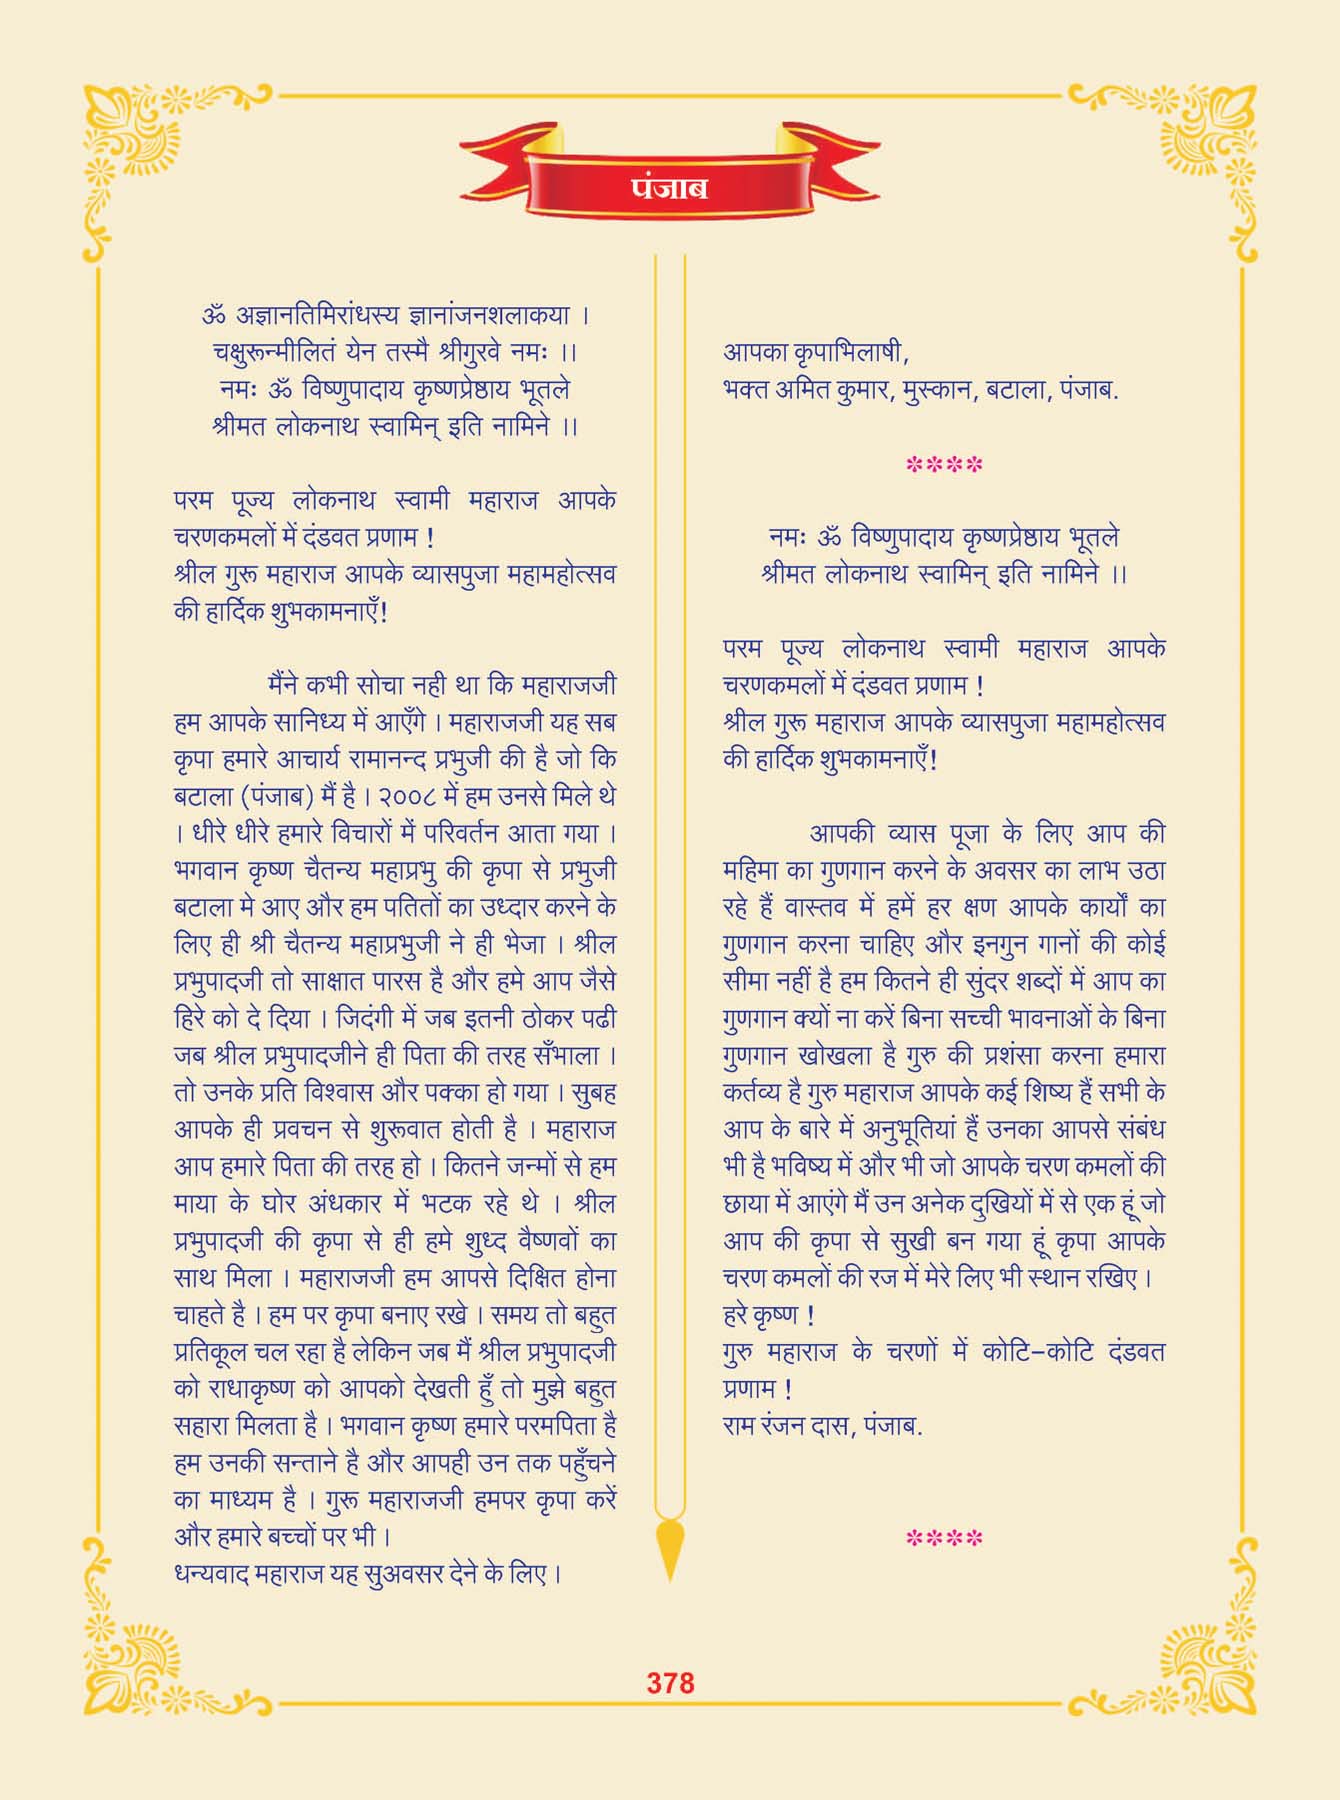 पंजाब
ॐ अज्ञानतिमिरांधस्य ज्ञानांजनशलाकया ।
चक्षुरून्मीलितं येन तस्मै श्रीगुरवे नमः ।।
नमः ॐ विष्णुपादाय कृष्णप्रेष्ठाय भूतले
श्रीमत लोकनाथ स्वामिन् इति नामिने ।।
परम पूज्य लोकनाथ स्वामी महाराज आपके
चरणकमलों में दंडवत प्रणाम !
श्रील गुरू महाराज आपके व्यासपुजा महामहोत्सव
की हार्दिक शुभकामनाएँ!
मैंने कभी सोचा नही था कि महाराजजी
हम आपके सानिध्य में आएँगे । महाराजजी यह सब
कृपा हमारे आचार्य रामानन्द प्रभुजी की है जो कि
बटाला (पंजाब) मैं है । २००८ में हम उनसे मिले थे
। धीरे धीरे हमारे विचारों में परिवर्तन आता गया ।
भगवान कृष्ण चैतन्य महाप्रभु की कृपा से प्रभुजी
बटाला मे आए और हम पतितों का उध्दार करने के
लिए ही श्री चैतन्य महाप्रभुजी ने ही भेजा । श्रील
प्रभुपादजी तो साक्षात पारस है और हमे आप जैसे
हिरे को दे दिया । जिदंगी में जब इतनी ठोकर पढी
जब श्रील प्रभुपादजीने ही पिता की तरह सँभाला ।
तो उनके प्रति विश्वास और पक्का हो गया । सुबह
आपके ही प्रवचन से शुरूवात होती है । महाराज
आप हमारे पिता की तरह हो । कितने जन्मों से हम
माया के घोर अंधकार में भटक रहे थे । श्रील
प्रभुपादजी की कृपा से ही हमे शुध्द वैष्णवों का
साथ मिला । महाराजजी हम आपसे दिक्षित होना
चाहते है । हम पर कृपा बनाए रखे । समय तो बहुत
प्रतिकूल चल रहा है लेकिन जब मैं श्रील प्रभुपादजी
को राधाकृष्ण को आपको देखती हुँ तो मुझे बहुत
सहारा मिलता है । भगवान कृष्ण हमारे परमपिता है
हम उनकी सन्ताने है और आपही उन तक पहुँचने
का माध्यम है । गुरू महाराजजी हमपर कृपा करें
और हमारे बच्चों पर भी ।
धन्यवाद महाराज यह सुअवसर देने के लिए ।
आपका कृपाभिलाषी,
भक्त अमित कुमार, मुस्कान, बटाला, पंजाब.
****
नमः ॐ विष्णुपादाय कृष्णप्रेष्ठाय भूतले
श्रीमत लोकनाथ स्वामिन् इति नामिने ।।
परम पूज्य लोकनाथ स्वामी महाराज आपके
चरणकमलों में दंडवत प्रणाम !
श्रील गुरू महाराज आपके व्यासपुजा महामहोत्सव
की हार्दिक शुभकामनाएँ!
आपकी व्यास पूजा के लिए आप की
महिमा का गुणगान करने के अवसर का लाभ उठा
रहे हैं वास्तव में हमें हर क्षण आपके कार्यों का
गुणगान करना चाहिए और इनगुन गानों की कोई
सीमा नहीं है हम कितने ही सुंदर शब्दों में आप का
गुणगान क्यों ना करें बिना सच्ची भावनाओं के बिना
गुणगान खोखला है गुरु की प्रशंसा करना हमारा
कर्तव्य है गुरु महाराज आपके कई शिष्य हैं सभी के
आप के बारे में अनुभूतियां हैं उनका आपसे संबंध
भी है भविष्य में और भी जो आपके चरण कमलों की
छाया में आएंगे मैं उन अनेक दुखियों में से एक हूं जो
आप की कृपा से सुखी बन गया हूं कृपा आपके
चरण कमलों की रज में मेरे लिए भी स्थान रखिए ।
हरे कृष्ण !
गुरु महाराज के चरणों में कोटि-कोटि दंडवत
प्रणाम !
राम रंजन दास, पंजाब.
****
378